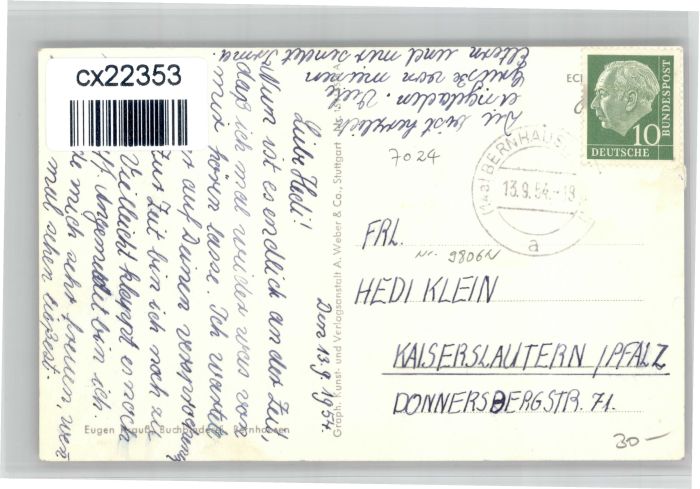 cx22353
Den 13.9.1954.
Liebe Hedi!
Nun ist es endlich an der Zeit,
daß ich mal wieder was von
mir hören lasse. Ich warte
auf Deinen versprochenen
Zur Zeit bin ich noch zu
Vielleicht klappt es noch
Angemeldet bin ich.
mich sehr freuen, wenn
mal sehen ließest.
Du bist herzlich
eingeladen. Viele
Grüße von meinen
Eltern und mir sendet Irma.
Eugen Krauß, Buchbinderei, Bernhausen
Graph. Kunst- und Verlagsanstalt A. Weber & Co., Stuttgart
ECH
10
DEUTSCHE
BUNDESPOST
(14a) BERNHAUSEN
13.9.54.-18
a
7024
FRL.
Nr. 9806N
HEDI KLEIN
KAISERSLAUTERN /PFALZ
DONNERSBERGSTR. 71.
30-